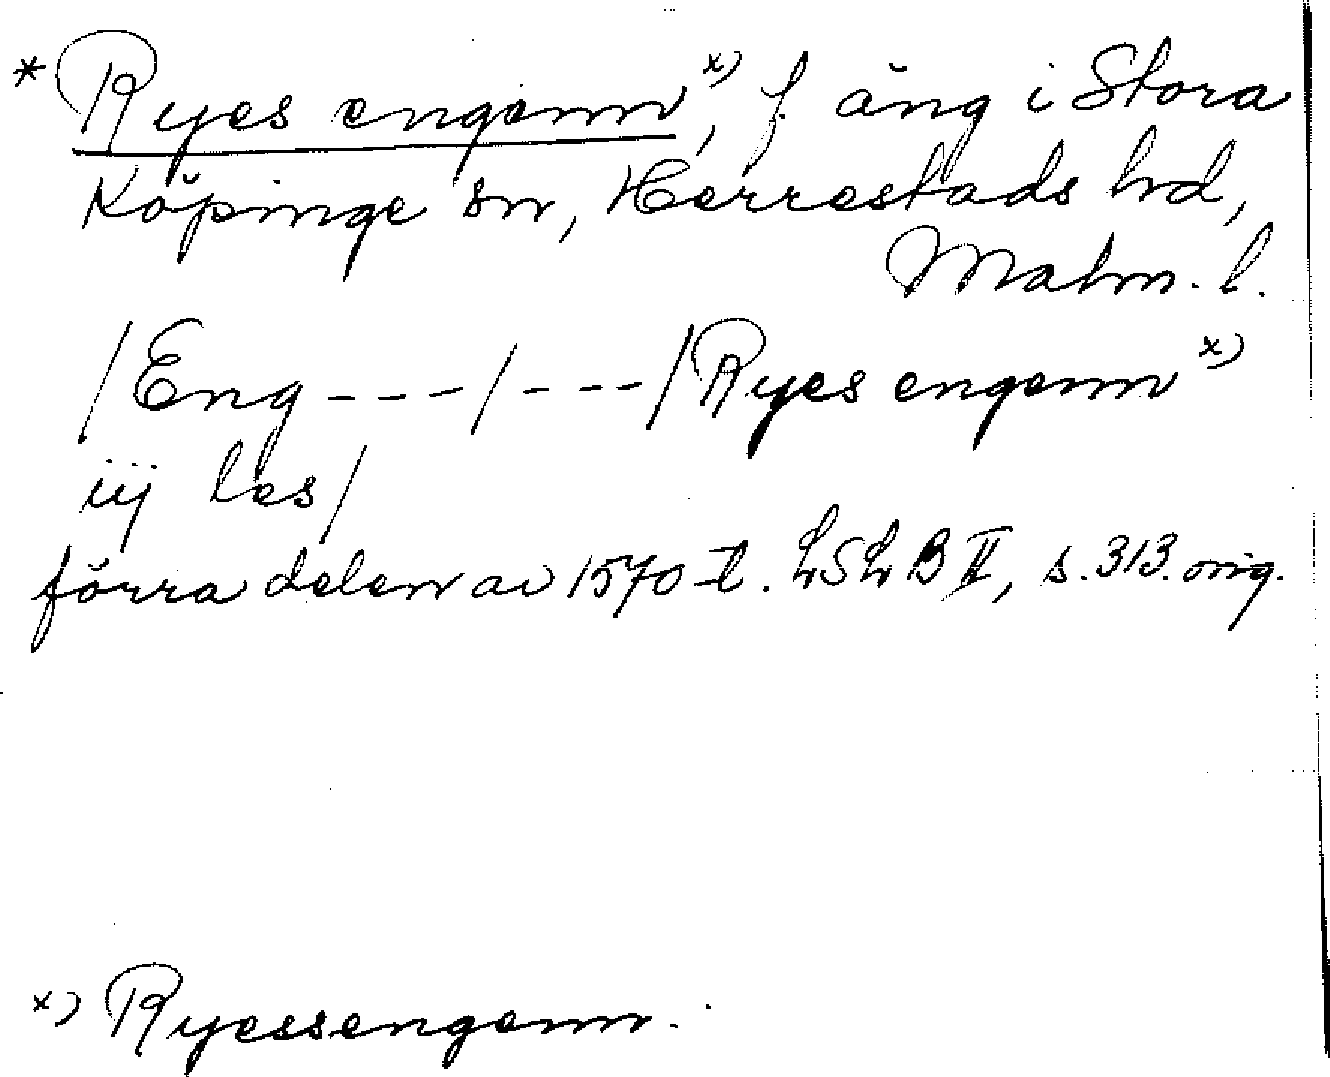 * Ryes engenn x), f. äng i Stora
Köpinge sn, Herrestads hd,
Malm. l.
/Eng---/---/Ryes engenn x)
iij les/
förra delen av 1570-t. LSLB II, s. 313. orig.
x) Ryessengenn.